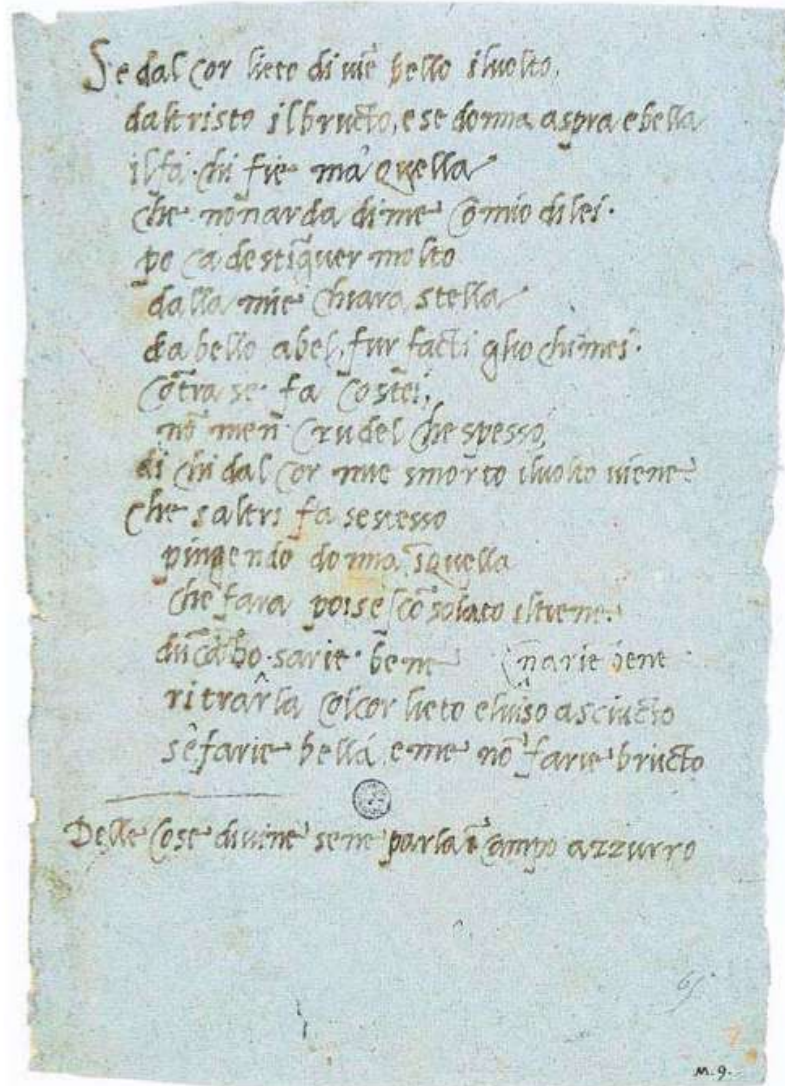 Se dal cor lieto diuiē bello iluolto,
daltristo ilbructo, e se donna aspra ebella
ilfa· chi fie ma' quella
che nōnarda dime com'io dilei·
po cadestīguer molto
dalla mie chiara stella
da bello abel, fur facti gliochimei·
cōtra se· fa costei,
nō men· crudel che spesso,
di chi dal cor mie smorto iluolto uiene·
che saltri fa sestesso
pingendo donna ī quella
che fara poise scōsolato iltiene·
du̅ca bo· sarie· bem narie bene
ritrarla colcor lieto eluiso asciucto
sē farie bella e me nō farie bructo
Delle cose diuine sene parla ī campo azzurro
65
M. 9.